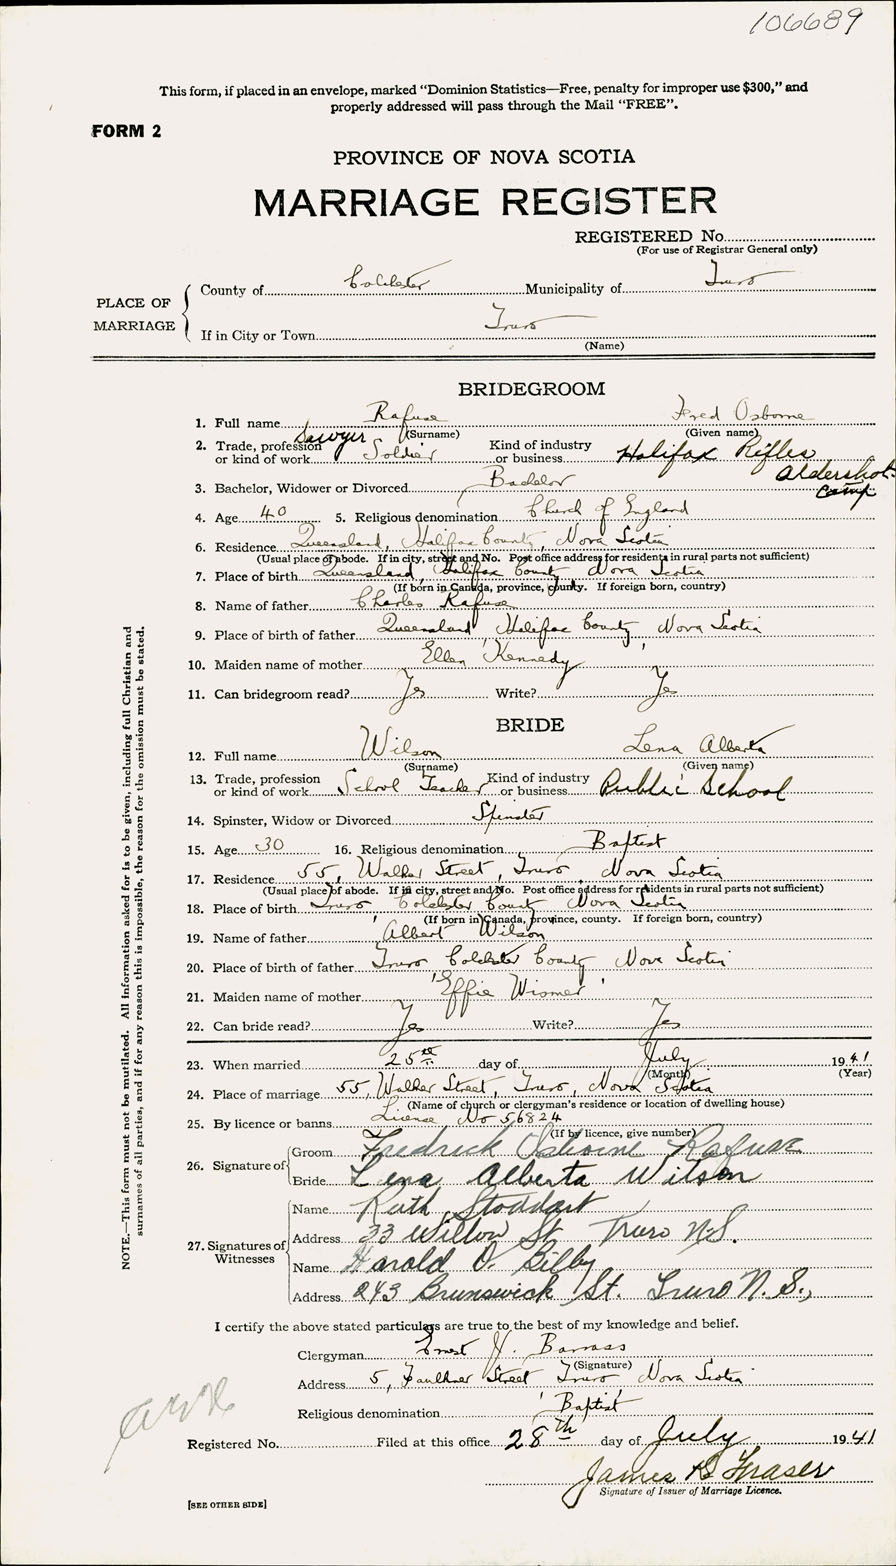 106689
This form, if placed in an envelope, marked "Dominion Statistics—Free, penalty for improper use $300," and
properly addressed will pass through the Mail "FREE".
FORM 2
PROVINCE OF NOVA SCOTIA
MARRIAGE REGISTER
REGISTERED No.
(For use of Registrar General only)
PLACE OF MARRIAGE
County of Colchester Municipality of Truro
If in City or Town Truro
(Name)
BRIDEGROOM
1. Full name Rafuse Fred Osborne
(Surname) (Given name)
2. Trade, profession or kind of work Sawyer Soldier Kind of industry or business Halifax Rifles Aldershot Camp
3. Bachelor, Widower or Divorced Bachelor
4. Age 40 5. Religious denomination Church of England
6. Residence Queensland, Halifax County, Nova Scotia
(Usual place of abode. If in city, street and No. Post office address for residents in rural parts not sufficient)
7. Place of birth Queensland, Halifax County Nova Scotia
(If born in Canada, province, county. If foreign born, country)
8. Name of father Charles Rafuse
9. Place of birth of father Queensland, Halifax County, Nova Scotia
10. Maiden name of mother Ellen Kennedy
11. Can bridegroom read? Yes Write? Yes
BRIDE
12. Full name Wilson Lena Alberta
(Surname) (Given name)
13. Trade, profession or kind of work School Teacher Kind of industry or business Public School
14. Spinster, Widow or Divorced Spinster
15. Age 30 16. Religious denomination Baptist
17. Residence 55, Walker Street, Truro, Nova Scotia
(Usual place of abode. If in city, street and No. Post office address for residents in rural parts not sufficient)
18. Place of birth Truro Colchester County Nova Scotia
(If born in Canada, province, county. If foreign born, country)
19. Name of father Albert Wilson
20. Place of birth of father Truro Colchester County Nova Scotia
21. Maiden name of mother Effie Wismer
22. Can bride read? Yes Write? Yes
23. When married 25th day of July 1941
(Month) (Year)
24. Place of marriage 55, Walker Street, Truro, Nova Scotia
(Name of church or clergyman's residence or location of dwelling house)
25. By licence or banns License No 56824
(If by licence, give number)
26. Signature of Groom Fredrick Osborne Rafuse
Bride Lena Alberta Wilson
27. Signatures of Witnesses
Name Ruth Stoddart
Address 33 Willow St Truro N.S.
Name Harold O. Bilby
Address 243 Brunswick St. Truro N.S.,
I certify the above stated particulars are true to the best of my knowledge and belief.
Clergyman Ernest J. Barrass
(Signature)
Address 5, Faulkner Street Truro Nova Scotia
Religious denomination Baptist
Registered No. Filed at this office 28th day of July 1941
James Fraser
Signature of Issuer of Marriage Licence.
[SEE OTHER SIDE]
NOTE.—This form must not be mutilated. All information asked for is to be given, including full Christian and
surnames of all parties, and if for any reason this is impossible, the reason for the omission must be stated.